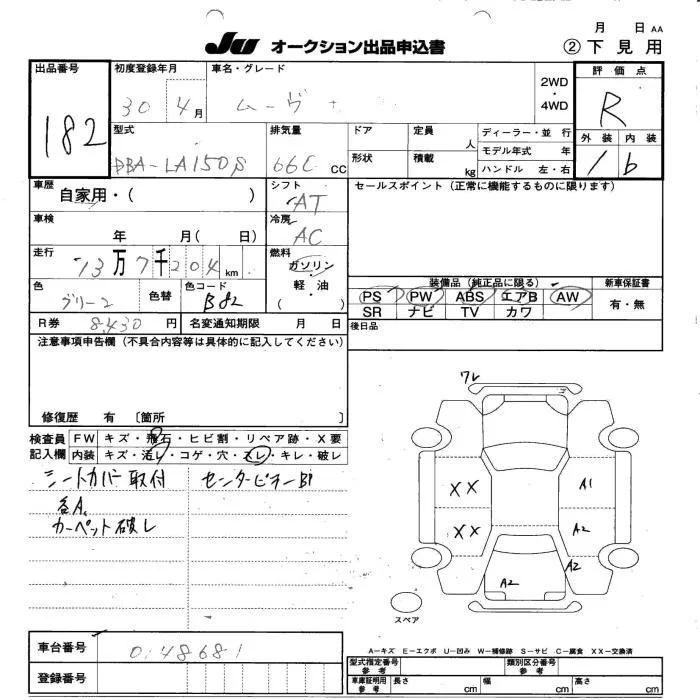 月 日 AA
JU オークション出品申込書 ② 下見用
出品番号 初度登録年月 車名・グレード 2WD ・ 4WD 評価点
182 30 4月 ムーヴ R
外装 内装
1 b
型式 排気量 ドア 定員 人 ディーラー・並 行
DBA-LA150S 660 cc モデル年式 年
形状 積載 kg ハンドル 左・右
車歴 自家用・( ) シフト AT セールスポイント(正常に機能するものに限ります)
車検 年 月( 日) 冷房 AC
走行 13万7千204km 燃料 ガソリン・軽油・( )
色 色替 色コード B82
装備品(純正品に限る) 新車保証書
PS PW ABS エアB AW 有・無
SR ナビ TV カワ
R券 8430円 名変通知期限 月 日 後日品
注意事項申告欄(不具合内容等は具体的に記入してください)
修復歴 有 〔箇所 〕
検査員記入欄 FW キズ・飛石・ヒビ割・リペア跡・X要
内装 キズ・汚レ・コゲ・穴・スレ・キレ・破レ
シートカバー取付 センターピラーBI
各A
カーペット破レ
ワレ
XX A1
XX A2
A2
A2
スペア
車台番号 0148681
登録番号
A-キズ E-エクボ U-凹み W-補修跡 S-サビ C-腐食 XX-交換済
型式指定番号 参考 類別区分番号 参考
車庫証明用 参考 長さ cm 幅 cm 高さ cm